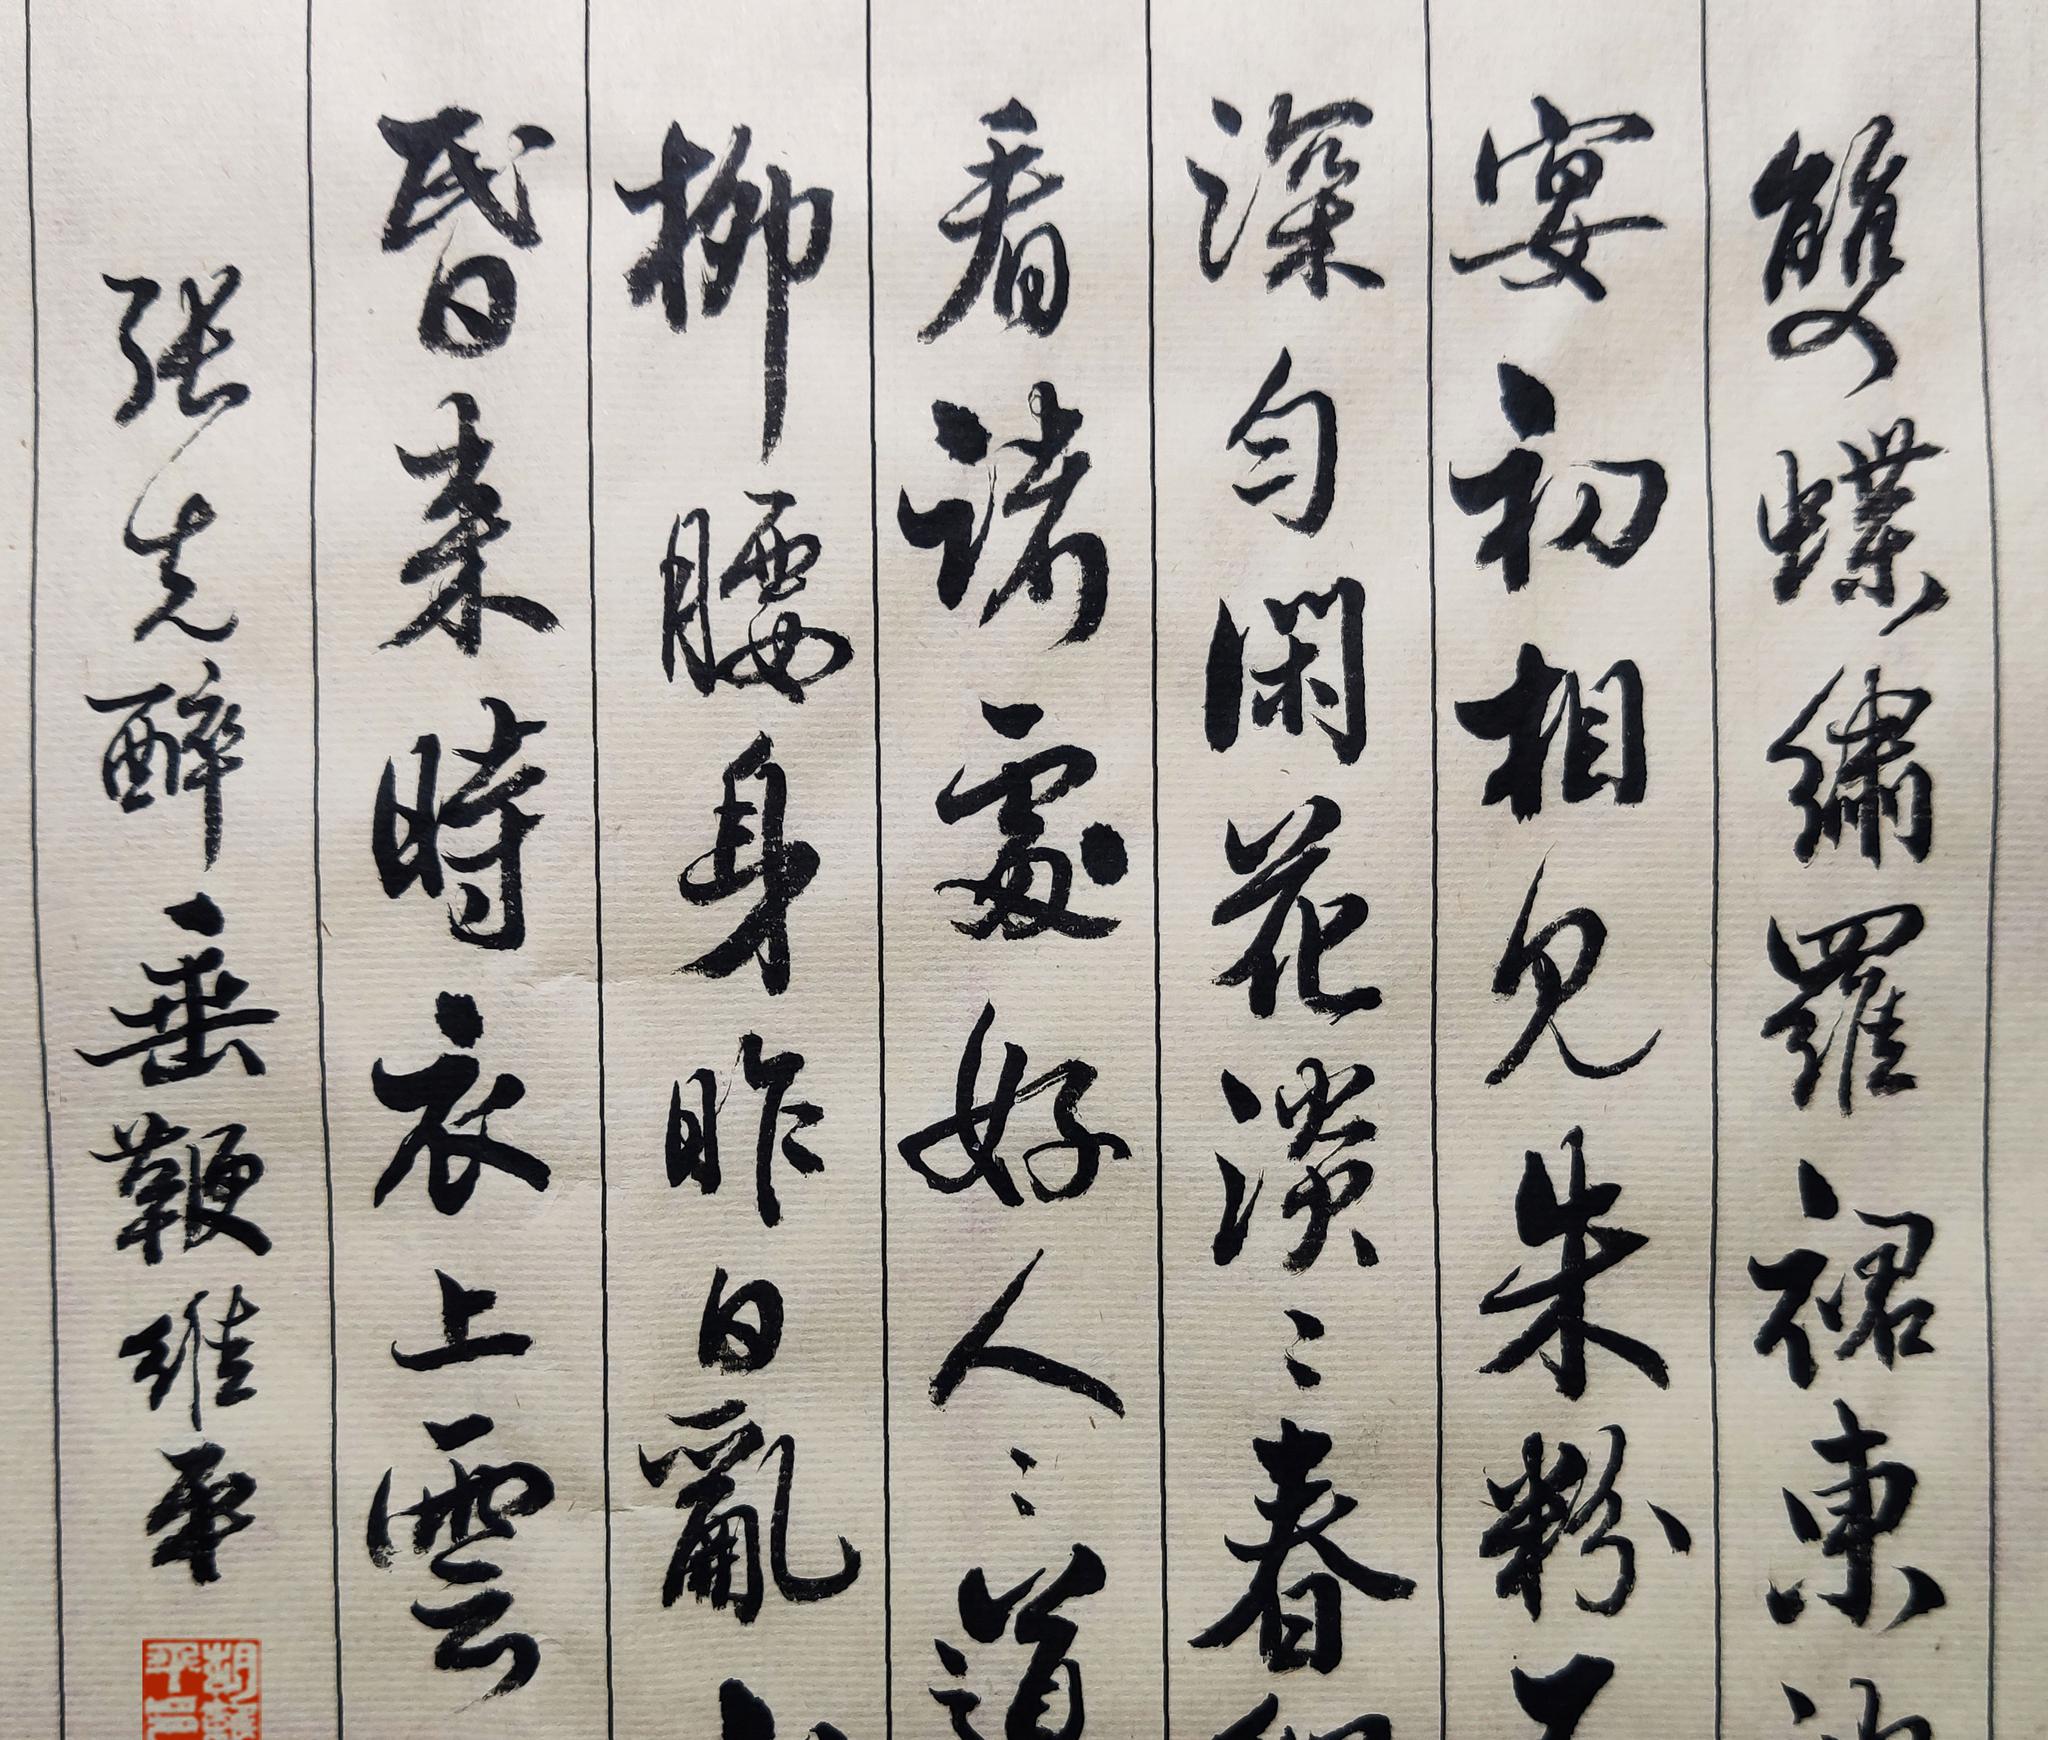 雙蝶繡羅裙東
宴初相見朱粉不
深匀閑花淡〻春
看諸處好人〻道
柳腰身昨日亂
昏来時衣上雲
張先醉垂鞭維平